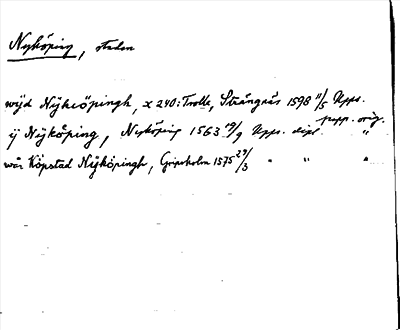 Nyköping, staden
wijd Nÿkiöpingh, x 240: Trolle, Strängnäs 1598 11/5 Upps.
papp. orig.
ij Nÿköping, Nyköping 1563 19/9 Upps. dipl. "
wår Köpstad Nÿköpingh, Gripsholm 1575 29/3 " " "